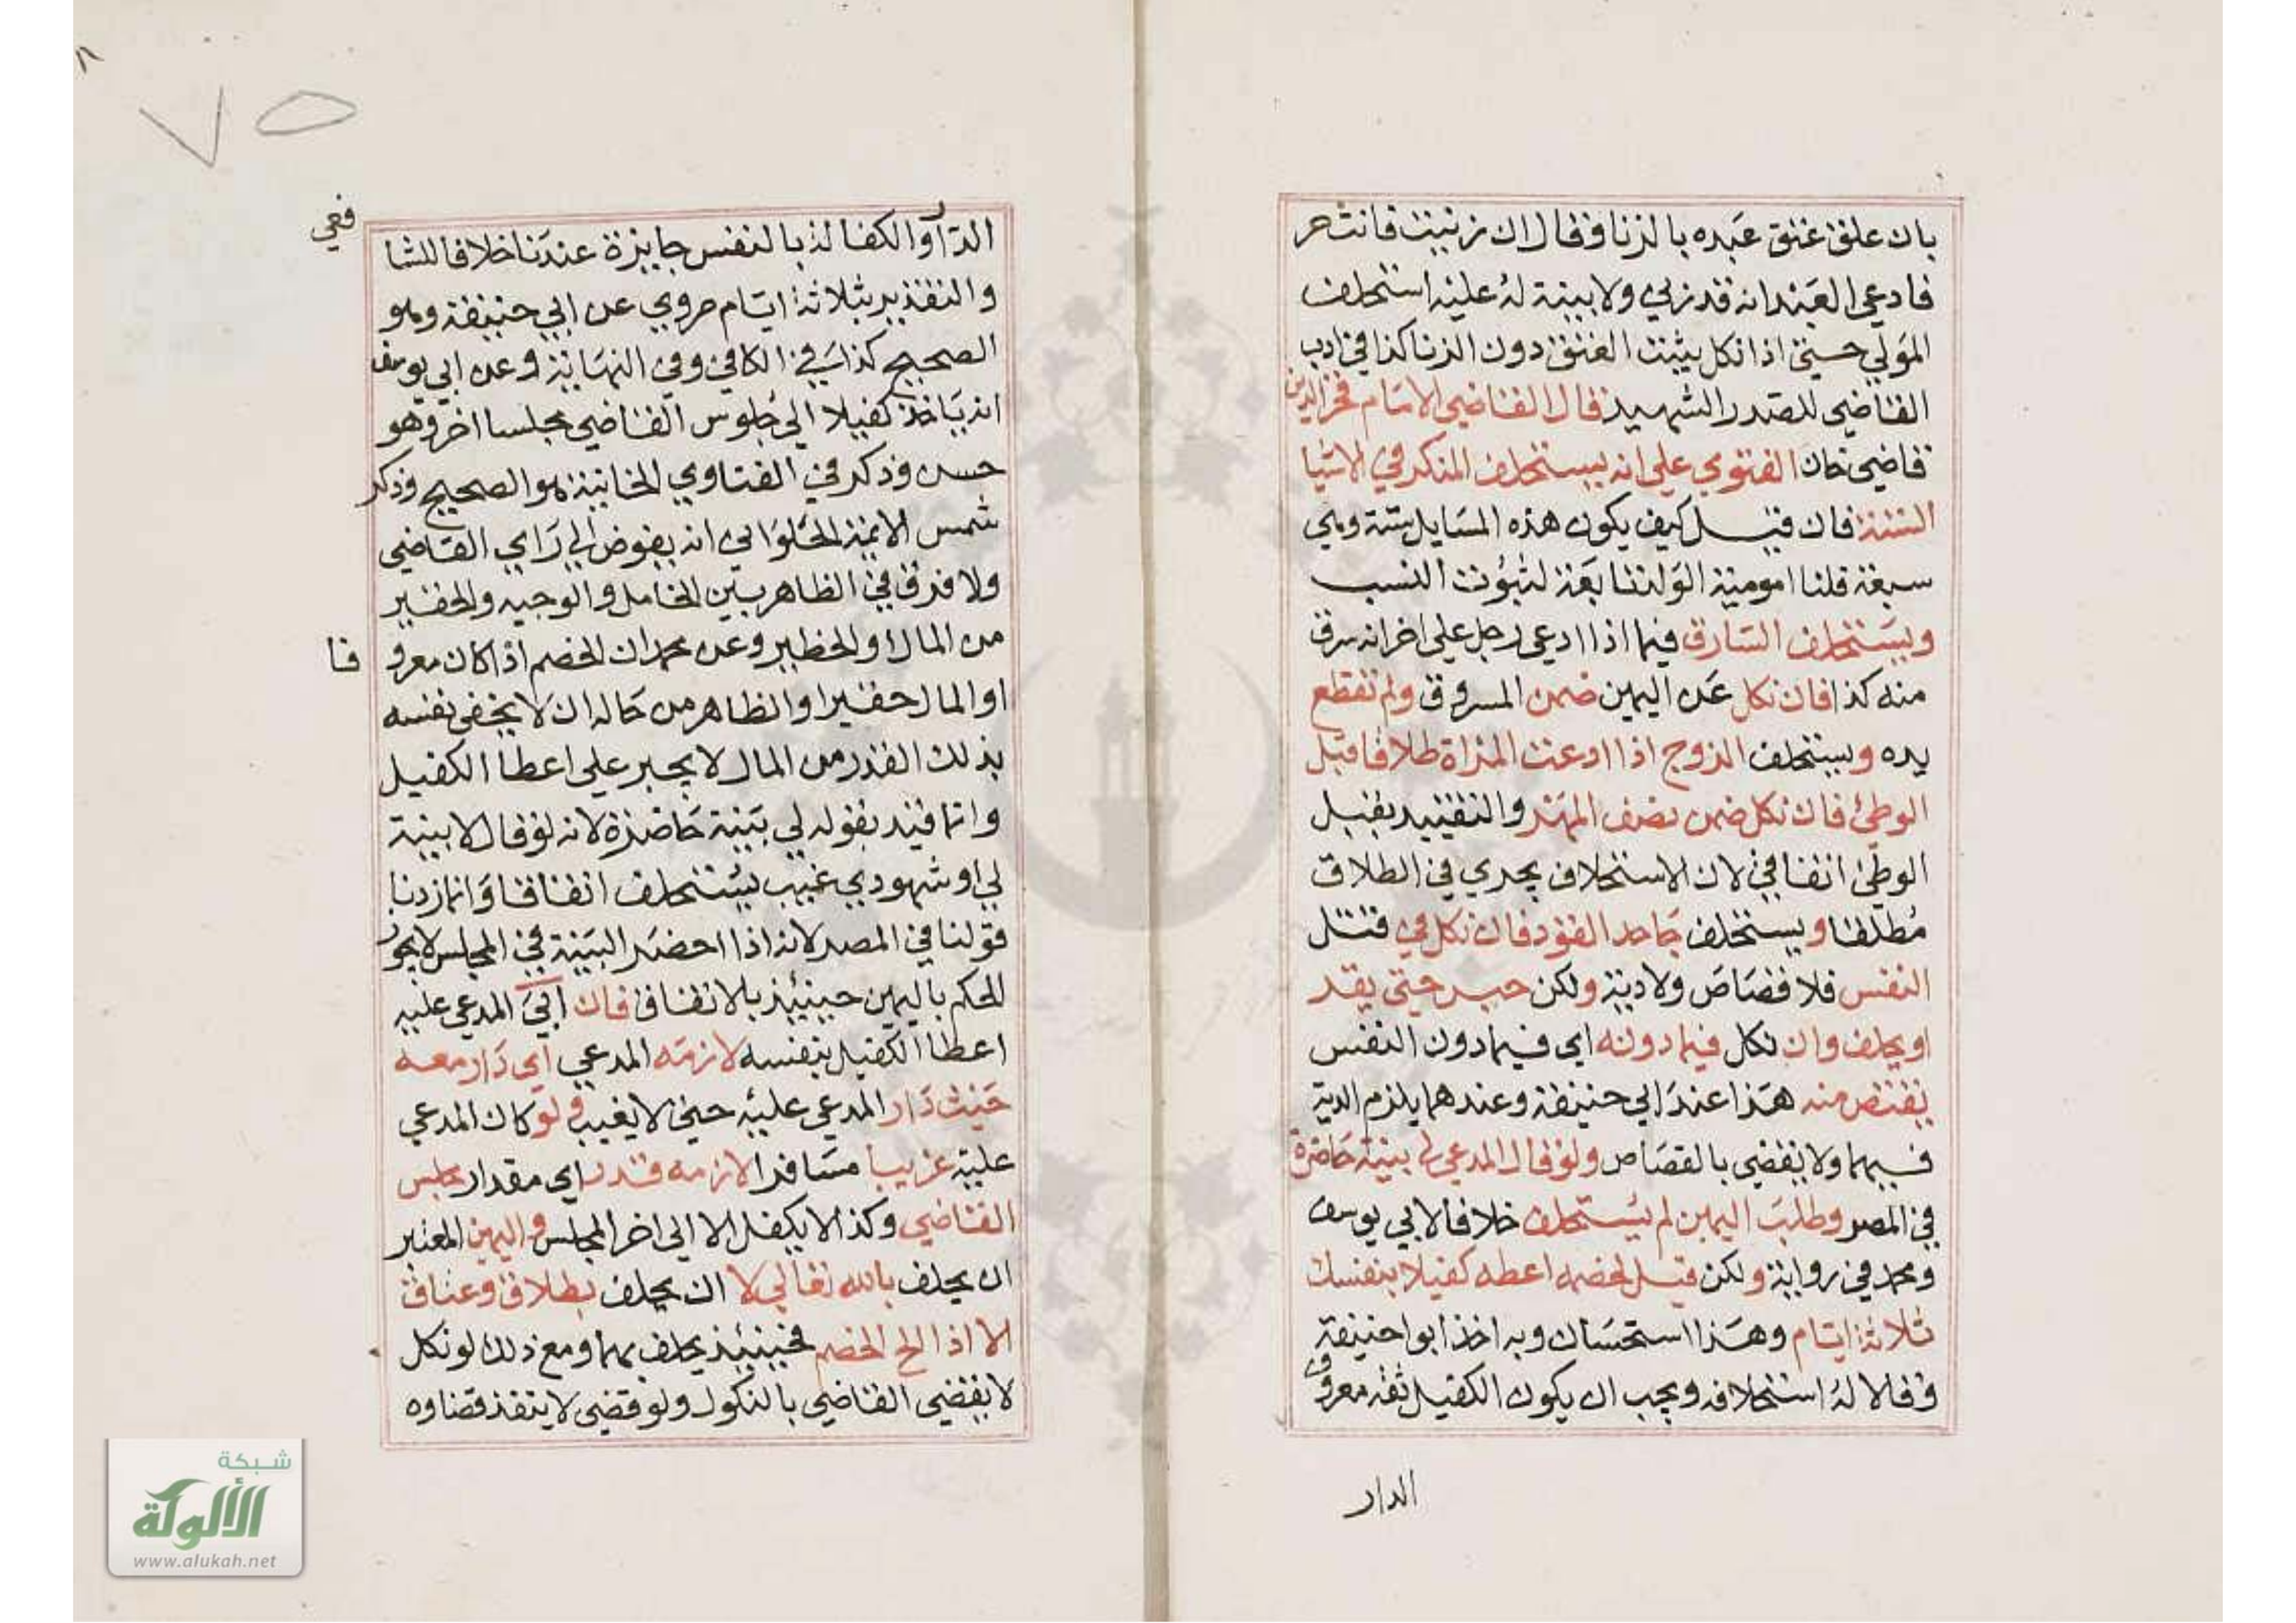 بان علق عتق عبده بالزنا وقال ان زنيت فانت حر
فادعى العبد انه قد زنى ولا بينة له عليه استحلف
المولى حتى اذا نكل يثبت العتق دون الزنا كذا في ادب
القاضي للصدر الشهيد قال القاضي الامام فخر الدين
قاضي خان الفتوى على انه يستحلف المنكر في الاشيا
الستة فان قيل كيف يكون هذه المسايل ستة وهي
سبعة قلنا امومية الولد تابعة لثبوت النسب
ويستحلف السارق فيما اذا ادعى رجل على اخر انه سرق
منه كذا فان نكل عن اليمين ضمن المسروق ولم تقطع
يده ويستحلف الزوج اذا ادعت المراة طلاقا قبل
الوطئ فان نكل ضمن نصف المهر والتقييد بقبل
الوطئ اتفاقي لان الاستحلاف يجري في الطلاق
مطلقا ويستحلف جاحد القود فان نكل في قتل
النفس فلا قصاص ولا دية ولكن حبس حتى يقر
او يحلف وان نكل فيما دونه اي فيما دون النفس
يقتص منه هذا عند ابي حنيفة وعندهما يلزم الدية
فيهما ولا يقضي بالقصاص ولو قال المدعي لي بينة حاضرة
في المصر وطلب اليمين لم يستحلف خلافا لابي يوسف
ومحمد في رواية ولكن قيل لخصمه اعطه كفيلا بنفسك
ثلاثة ايام وهذا استحسان وبه اخذ ابو احنيفة
وقالا له استحلافه ويجب ان يكون الكفيل ثقة معروف
الدار
٧٥
الدار والكفالة بالنفس جايزة عندنا خلافا للشا
فعي
والتقدير بثلاثة ايام مروي عن ابي حنيفة وهو
الصحيح كذا في الكافي وفي النهاية وعن ابي يوسف
انه ياخذ كفيلا الى جلوس القاضي مجلسا اخر وهو
حسن وذكر في الفتاوي الخانية هو الصحيح وذكر
شمس الايمة الحلواني انه يفوض الى راي القاضي
ولا فرق في الظاهر بين الخامل والوجيه والحقير
من المال والخطير وعن محمد ان الخصم اذا كان معرو
فا
او المال حقيرا والظاهر من حاله ان لا يخفي نفسه
بذلك القدر من المال لا يجبر على اعطا الكفيل
وانما قيد بقوله لي بينة حاضرة لانه لو قال لا بينة
لي او شهودي غيب يستحلف اتفاقا وانما زدنا
قولنا في المصر لانه اذا احضر البينة في المجلس لا يجوز
الحكم باليمين حينيذ بلا اتفاق فان ابى المدعى عليه
اعطا الكفيل بنفسه لازمه المدعي اي دار معه
حيث دار المدعى عليه حتى لا يغيب ولو كان المدعي
عليه غريبا مسافرا لازمه قدر اي مقدار مجلس
القاضي وكذا لا يكفل الا الى اخر المجلس واليمين المعتبر
ان يحلف بالله تعالى لا ان يحلف بطلاق وعتاق
الا اذا الح الخصم فحينيذ يحلف بهما ومع ذلك لو نكل
لا يقضي القاضي بالنكول ولو قضى لا ينفذ قضاوه
شبكة
الألوكة
www.alukah.net